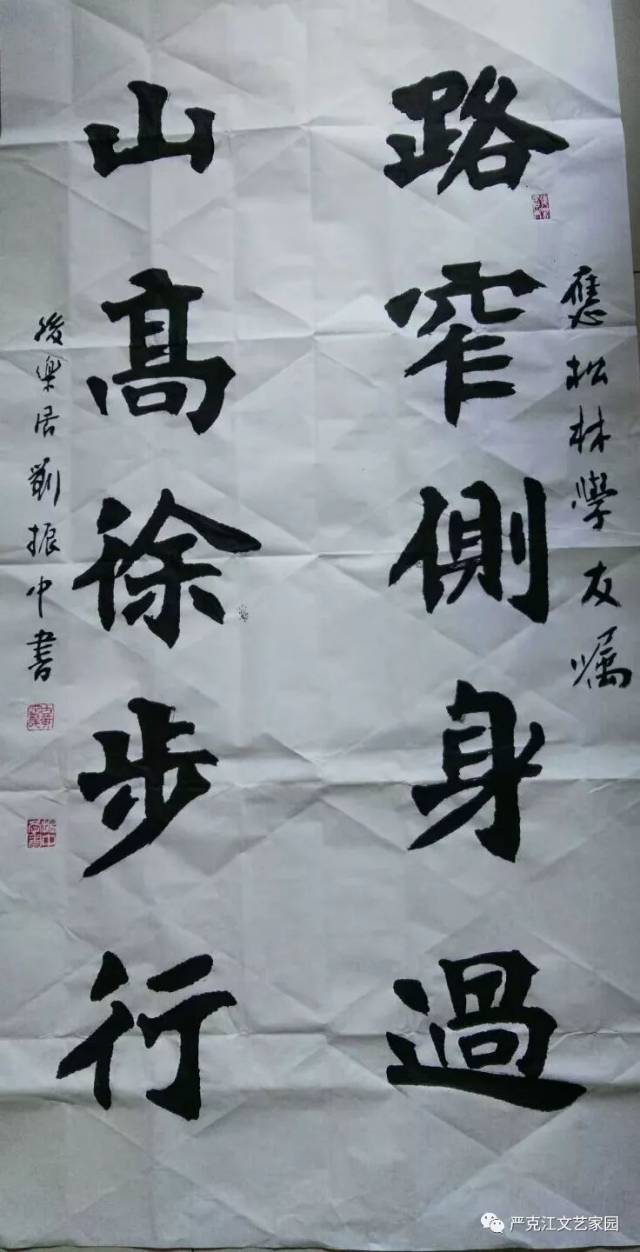 應松林學友嘱
路窄側身過
山髙徐步行
後樂居劉振中書
严克江文艺家园